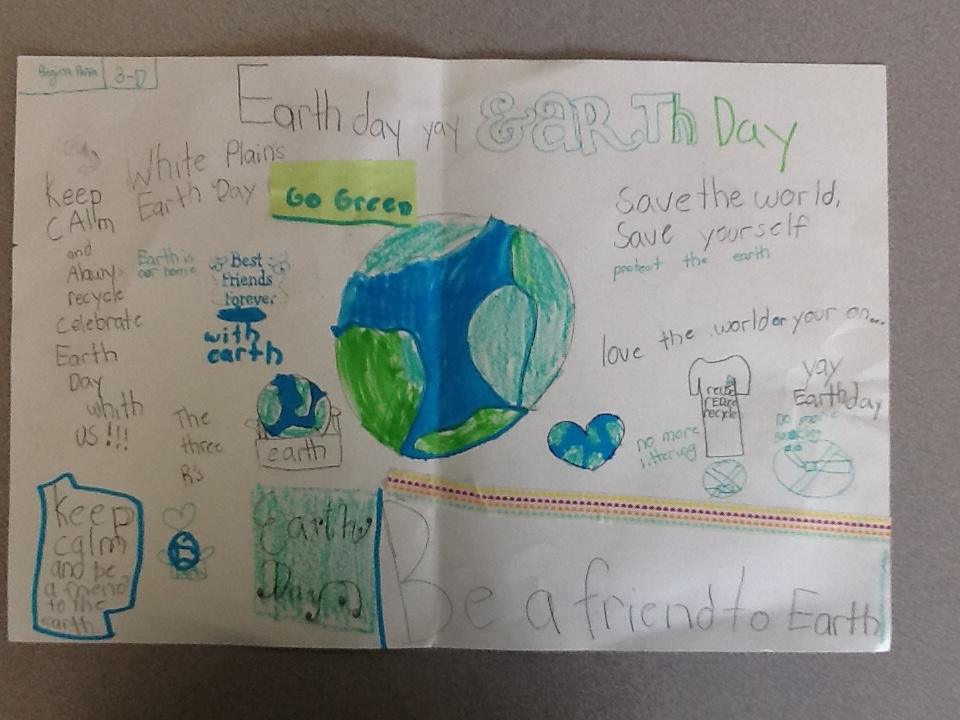 3-D
Earth day yay EARTh Day
White Plain's
Earth Day
Go Green
Keep
CAlm
and
Alawys
recycle
Celebrate
Earth
Day
whith
US!!!
Earth is
our home
Best
Friends
Forever
with
earth
Save the world,
Save yourself
protect the earth
love the world or your on...
The
three
R's
earth
no more
littering
reuse
reduce
recycle
yay
Earthday
no more
Keep
calm
and be
a friend
to the
earth
Earth
Day
Be a friend to Earth